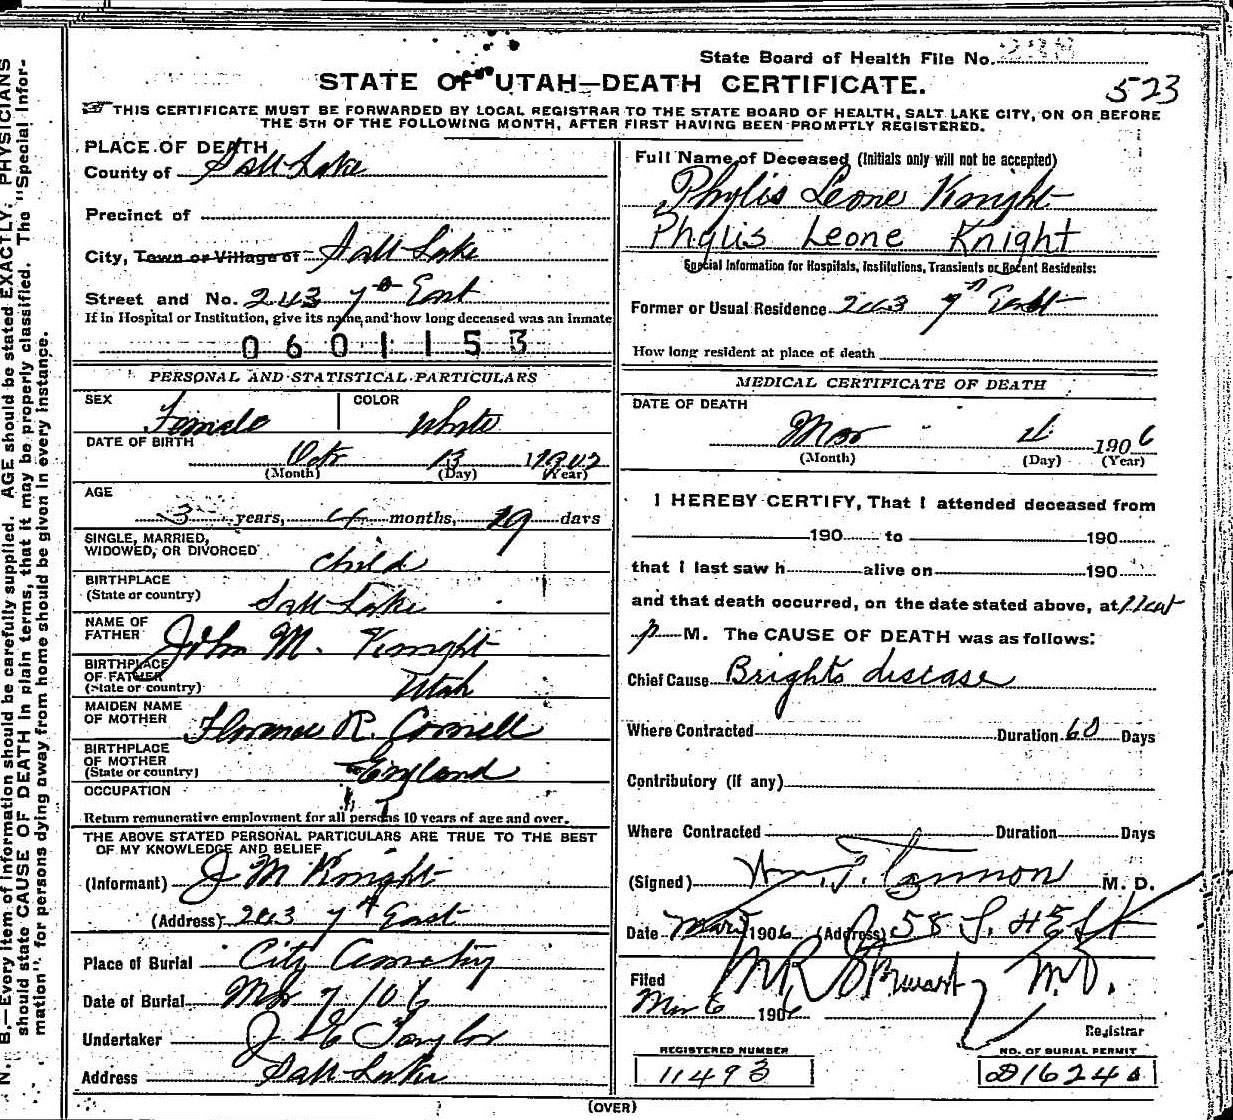 State Board of Health File No.
STATE OF UTAH—DEATH CERTIFICATE.
523
THIS CERTIFICATE MUST BE FORWARDED BY LOCAL REGISTRAR TO THE STATE BOARD OF HEALTH, SALT LAKE CITY, ON OR BEFORE
THE 5TH OF THE FOLLOWING MONTH, AFTER FIRST HAVING BEEN PROMPTLY REGISTERED.
N. B.—Every item of information should be carefully supplied. AGE should be stated EXACTLY. PHYSICIANS
should state CAUSE OF DEATH in plain terms, that it may be properly classified. The "Special Infor-
mation" for persons dying away from home should be given in every instance.
PLACE OF DEATH
County of Salt Lake
Precinct of
City, Town or Village of Salt Lake
Street and No. 243 7th East
If in Hospital or Institution, give its name, and how long deceased was an inmate
0601153
PERSONAL AND STATISTICAL PARTICULARS
SEX Female COLOR White
DATE OF BIRTH Oct 13 1902
(Month) (Day) (Year)
AGE
3 years, 4 months, 19 days
SINGLE, MARRIED,
WIDOWED, OR DIVORCED child
BIRTHPLACE
(State or country) Salt Lake
NAME OF
FATHER John M. Knight
BIRTHPLACE
OF FATHER
(State or country) Utah
MAIDEN NAME
OF MOTHER Florence R. Cornell
BIRTHPLACE
OF MOTHER
(State or country) England
OCCUPATION
Return remunerative employment for all persons 10 years of age and over.
THE ABOVE STATED PERSONAL PARTICULARS ARE TRUE TO THE BEST
OF MY KNOWLEDGE AND BELIEF
(Informant) J M Knight
(Address) 243 7th East
Place of Burial City Cemetery
Date of Burial Mar 7 / 06
Undertaker Taylor
Address Salt Lake
Full Name of Deceased (Initials only will not be accepted)
Phylis Leone Knight
Phylis Leone Knight
Special Information for Hospitals, Institutions, Transients or Recent Residents:
Former or Usual Residence 243 7th East
How long resident at place of death
MEDICAL CERTIFICATE OF DEATH
DATE OF DEATH
Mar 4 1906
(Month) (Day) (Year)
I HEREBY CERTIFY, That I attended deceased from
190 to 190
that I last saw h alive on 190
and that death occurred, on the date stated above, at
p M. The CAUSE OF DEATH was as follows:
Chief Cause Brights disease
Where Contracted Duration 60 Days
Contributory (if any)
Where Contracted Duration Days
(Signed) Wm. T. Cannon M. D.
Date Mar 1906 (Address) 58 S.
Filed M R Stewart M.D.
Mar 6 1906
Registrar
REGISTERED NUMBER
11493
NO. OF BURIAL PERMIT
(OVER)